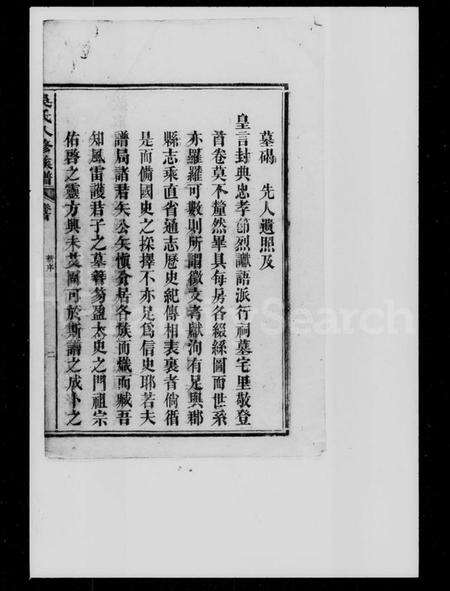 墓碣　先人遺照及
皇言封典忠孝節烈讖語派行祠墓宅里敬登
首卷莫不釐然畢具每房各綴綵圖而世系
亦羅羅可數則所謂徵文考獻洵有足與郡
縣志乘直省通志歷史紀傳相表裏者倘循
是而備國史之採擇不亦足爲信史耶若夫
譜局諸君矢公矢愼分居各族而熾而臧吾
知風雷護君子之墓簪笏盈太史之門祖宗
佑啓之靈方興未艾爾可於斯譜之成卜之
吳氏八修族譜 卷首 新序 二
Search